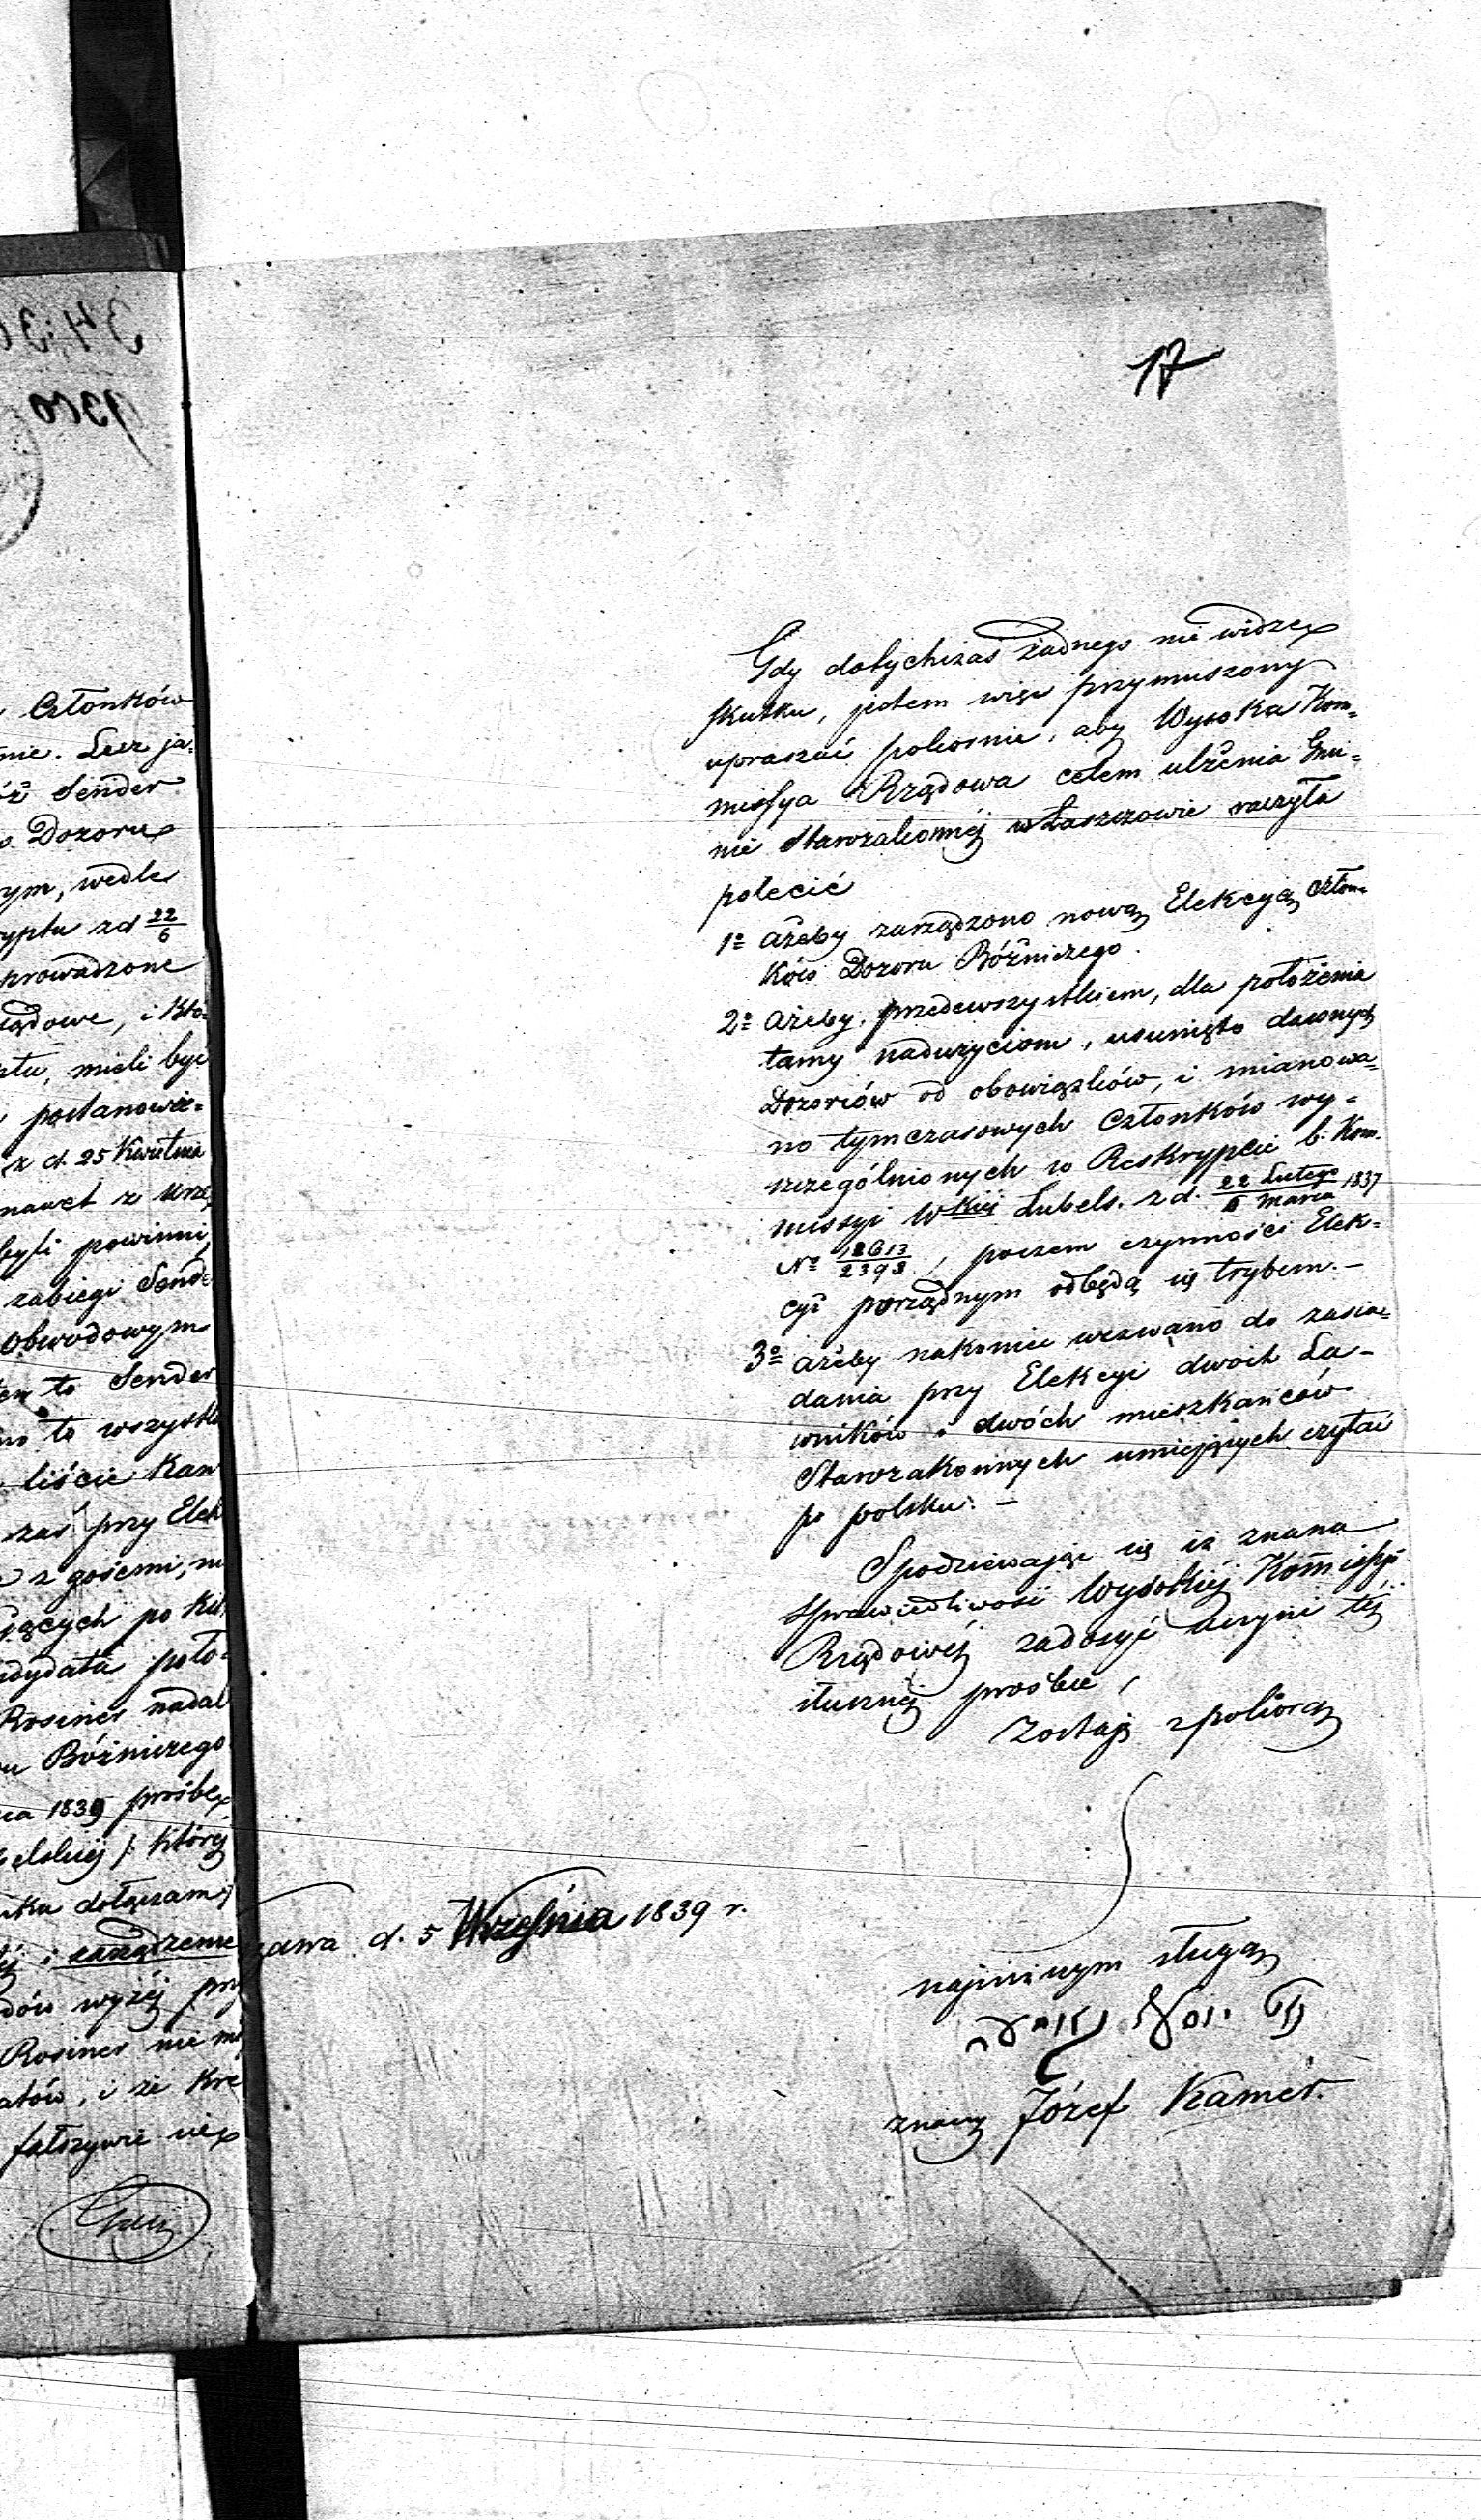 17
Członków
nie. Lecz ja=
Sender
Dozoru
wedle
zd 22/6
prowadzone
mieli być
postanowie=
z d. 25 Kwietnia
nawet z
byli powinni
zabiegi
Obwodowym
to Sender
to wszystko
liście
zaś przy
z gośćmi,
po
Rosiner nadal
Bóżniczego
1839 prośbę
której
dołączam
i zarządzenie
wyżéj
Rosiner nie
i że
fałszywie
Gdy dotychczas żadnego nie widzę
skutku, jestem więc przymuszony
upraszać pokornie, aby Wysoka Kom=
missya Rządowa celem ulżenia Gmi=
nie Starozakonnéj w Łaszczowie raczyła
polecić
1º ażeby zarządzono nową Elekcyą Człon=
ków Dozoru Bóżniczego.
2º ażeby, przedewszystkiem, dla położenia
tamy nadużyciom, usunięto dawnych
Dozorców od obowiązków, i mianowa=
no tymczasowych Członków wy=
szczególnionych w Reskrypcie b. Kom=
missyi Wkiéj Lubels. z d. 22 Lutego/6 Marca 1837
Nº 12613/2393, poczem czynności Elek=
cyi porządnym odbędą się trybem. –
3º ażeby nakoniec wezwano do zasia=
dania przy Elekcyi dwóch Ła–
wników i dwóch mieszkańców
Starozakonnych umiejących czytać
po polsku. –
Spodziewając się iż znana
sprawiedliwość Wysokiéj Komissyi
Rządowéj zadosyć uczyni téj
słusznéj prośbie,
Zostaję z pokorą
d. 5 Września 1839 r.
najniższym sługą
יוסף
znany Józef Kamer.